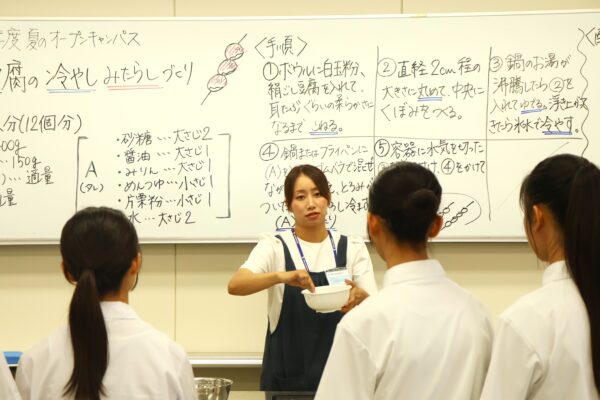 年度 夏のオープンキャンパス
腐の 冷やし みたらしづくり
人分(12個分)
00g
…150g
…適量
量
A
(タレ)
・砂糖…大さじ2
・醤油…大さじ1
・みりん…大さじ1
・めんつゆ…小さじ1
・片栗粉…小さじ1
・水…大さじ2
〈手順〉
①ボウルに白玉粉、
絹ごし豆腐を入れて、
耳たぶくらいの柔らかさに
なるまでこねる。
②直径2cm程の
大きさに丸めて、中央に
くぼみをつくる。
③鍋のお湯が
沸騰したら②を
入れてゆでる。浮き上がって
きたら氷水で冷やす。
④鍋またはフライパンに
(A)を ゴムベラで混ぜ
なが とろみが
ついた 冷ます
(A
⑤容器に水気を切った
④をかけて